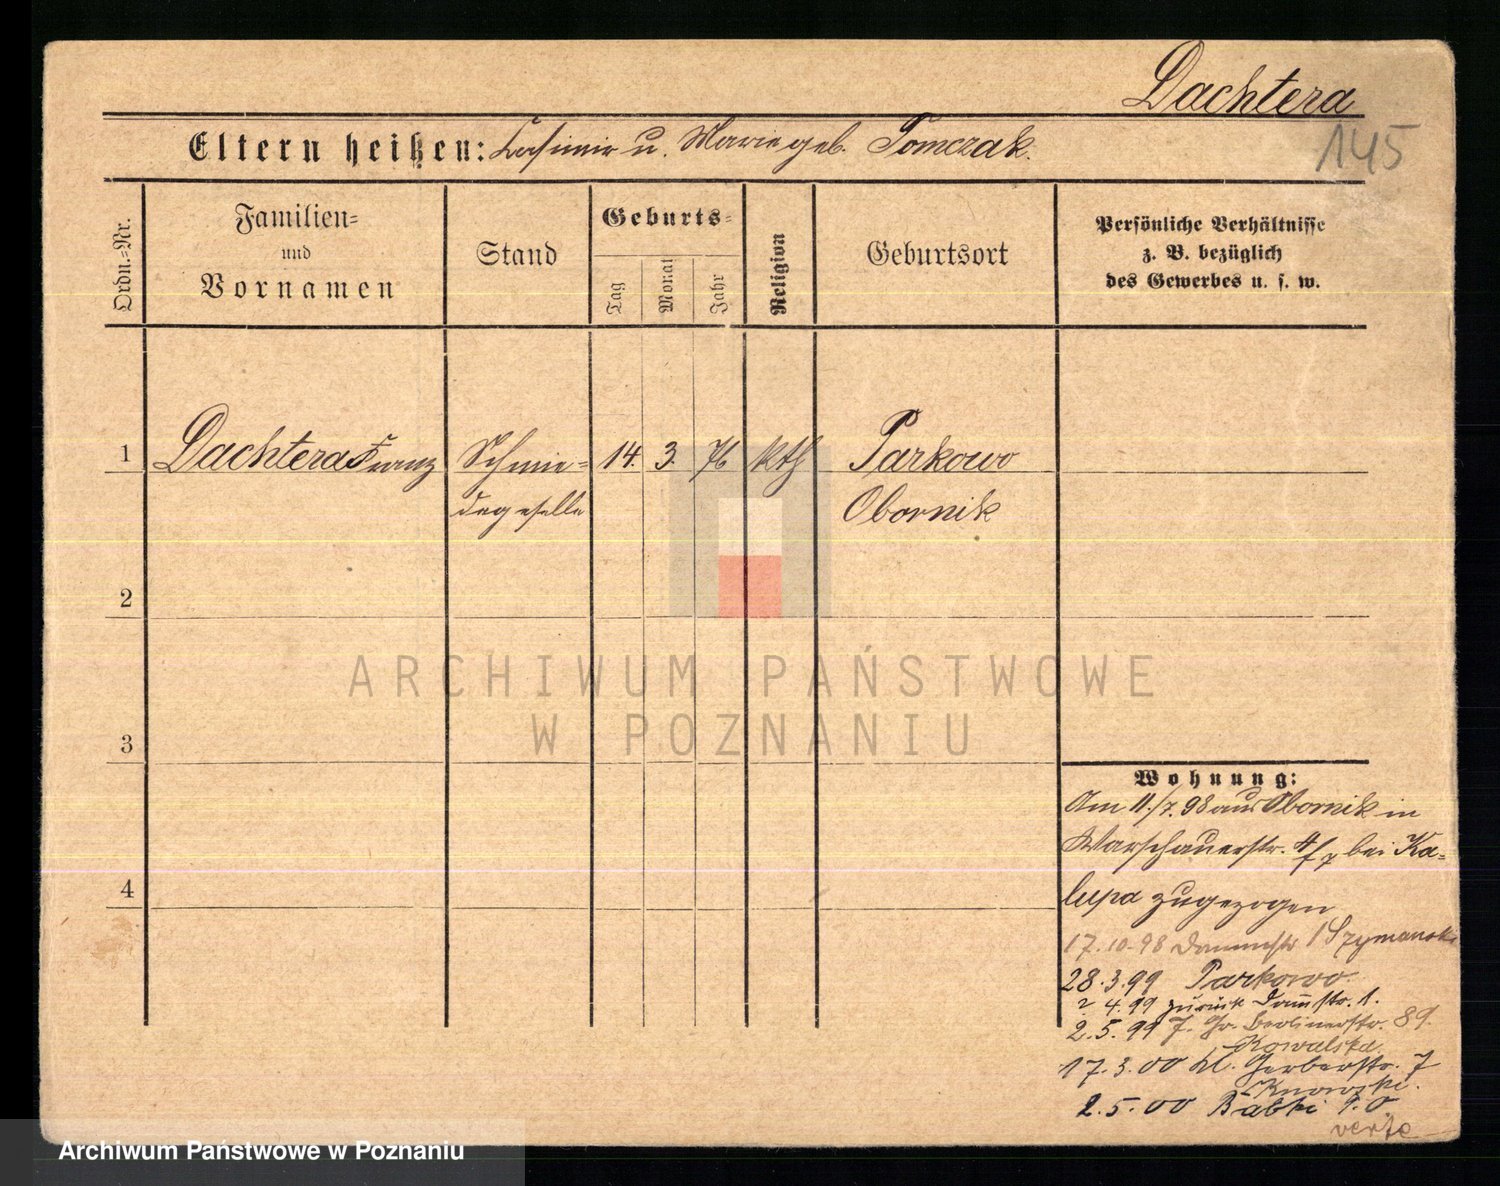 Dachtera
145
Eltern heißen: Casimir u. Marie geb. Tomczak.
Ordn.-Nr.
Familien-
und
Vornamen
Stand
Geburts-
Tag
Monat
Jahr
Religion
Geburtsort
Persönliche Verhältnisse
z. B. bezüglich
des Gewerbes u. s. w.
1 Dachtera Franz Schmie- 14. 3. 76 kth Parkowo
degeselle Obornik
2
3
4
ARCHIWUM PAŃSTWOWE
W POZNANIU
Wohnung:
Am 11./7. 98 aus Obornik in
Warschauerstr. 4/7 bei Ka-
lupa zugezogen
17.10.98 Dammstr 1 Szymanski
28.3.99 Parkowo.
2 4.99 zurück Dammstr. 1.
2.5.99 Gr. Berlinerstr. 89.
Kowalska
17.3.00 Kl. Gerberstr. 7
2.5.00 Babki P. O
verte
Archiwum Państwowe w Poznaniu